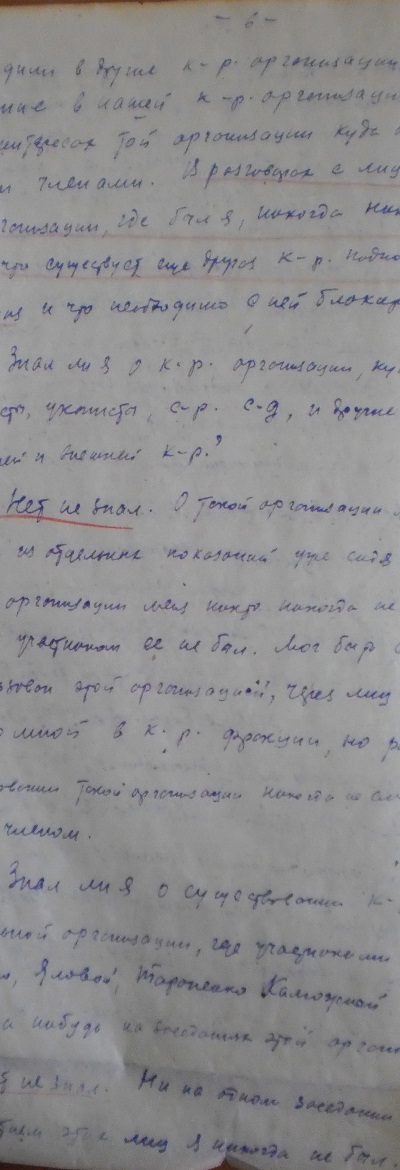 - 6 -
дили в другие к-р. организации
ние в нашей к-р. организации
интересах той организации куда
и членами. В разговорах с лиц
ганизации, где был я, никогда ник
что существует еще другая к-р. подпо
ия и что необходимо с ней блокир
Знал ли я о к-р. организации, ку
сты, укописты, с-р. с-д, и другие
ей и внешней к-р.?
Нет не знал. О такой организации
из отдельных показаний уже сидя
организации меня никто никогда не
участником ее не был. Мог быть
зован этой организацией, через лиц
о мной в к.р. фракции, но
вовании такой организации никогда не
членом.
Знал ли я о существовании к-
ной организации, где участниками
Яловой, Тараненко Каможной
а нибудь на заседаниях этой орган
т не знал. Ни на одном заседании
этих лиц я никогда не был.